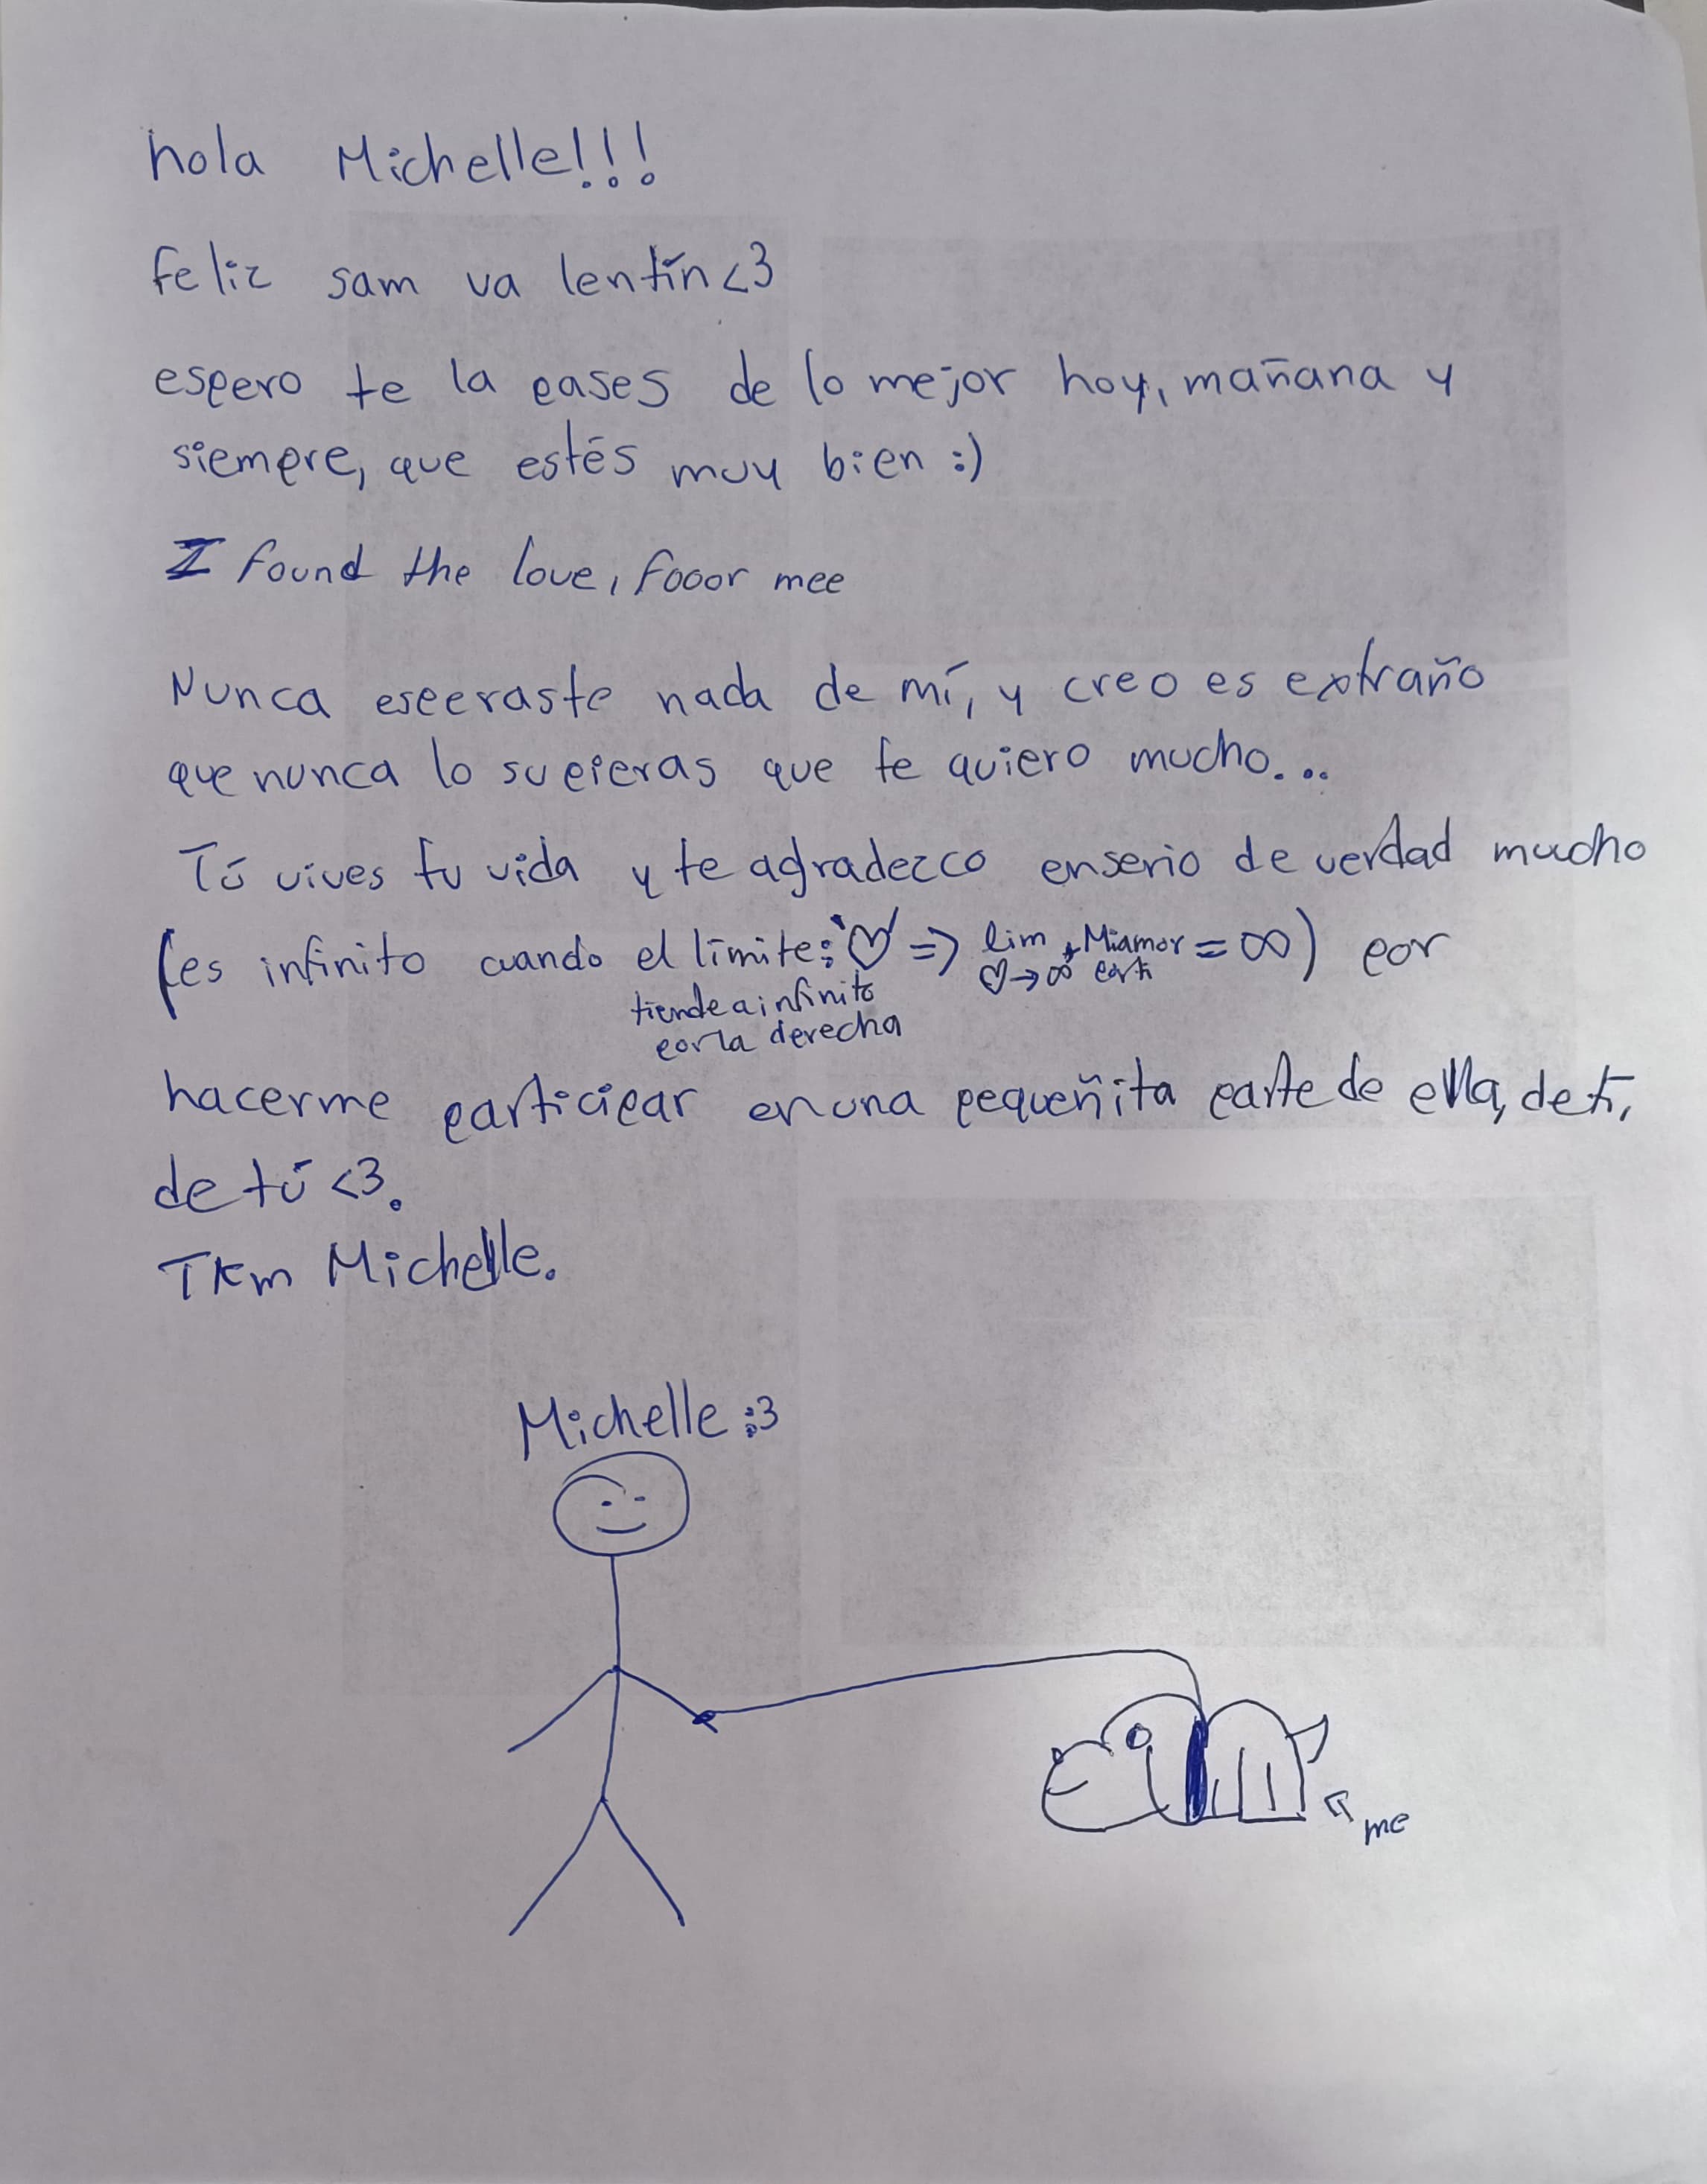 hola Michelle!!!
feliz sam va lentín <3
espero te la pases de lo mejor hoy, mañana y
siempre, que estés muy bien :)
I found the love, fooor mee
Nunca esperaste nada de mí, y creo es extraño
que nunca lo supieras que te quiero mucho...
Tú vives tu vida y te agradezco enserio de verdad mucho
(es infinito cuando el límite: ♡ => lim Mi amor = ∞) por
♡→∞⁺ por ti
tiende a infinito
por la derecha
hacerme participar en una pequeñita parte de ella, de ti,
de tú <3.
TKm Michelle.
Michelle :3
me